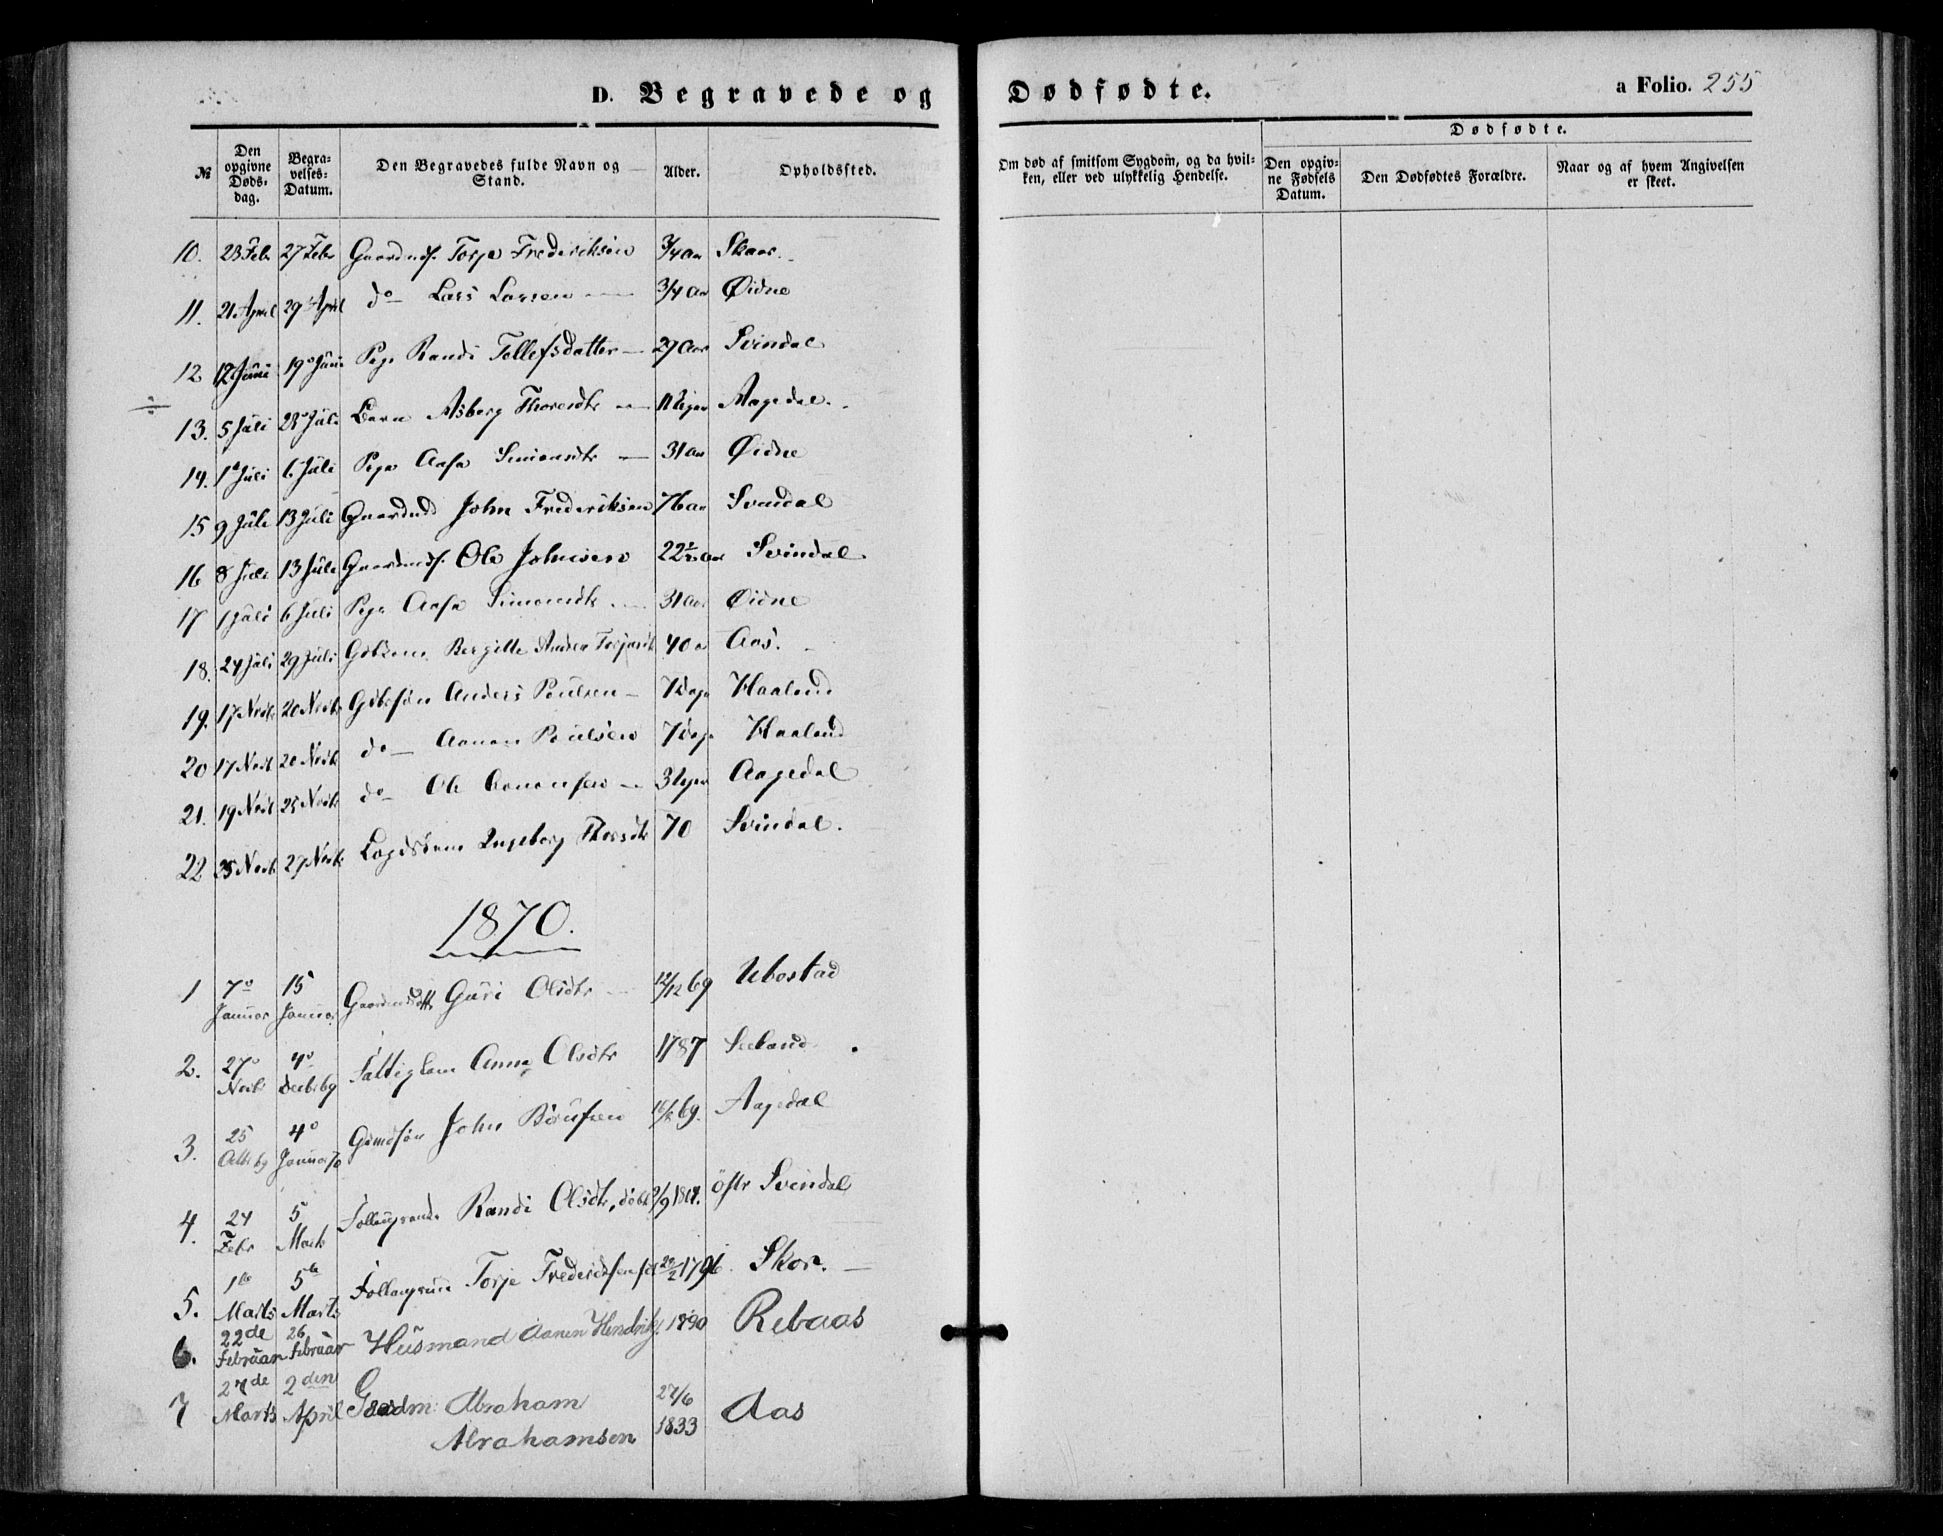 D. Begravede og Dødfødte. a Folio. 255
Dødfødte.
№ Den opgivne Døds-dag. Begra-velses-Datum. Den Begravedes fulde Navn og Stand. Alder. Opholdssted. Om død af smitsom Sygdom, og da hvil-ken, eller ved ulykkelig Hendelse. Den opgiv-ne Fødsels Datum. Den Dødfødtes Forældre. Naar og af hvem Angivelsen er skeet.
10. 23 Febr 27 Febr Gaardmds. Torje Frederiksen 3/4 aar Skaar.
11. 21 April 29 April do Lars Larsen 3/4 aar Øidne
12 12 Juni 19 Juni Pige Randi Tollefsdatter 27 aar Svindal
÷
13. 5 Juli 28 Juli Barn Asberg 11 Uger Aagedal.
14. 1 Juli 6 Juli Pige Aasa Simonsdtr 31 aar Øidne
15 9 Juli 13 Juli Gaardmd John Frederiksen 76 aar Svindal
16 8 Juli 13 Juli Gaardmds. Ole Johnsen 22 1/2 aar Svindal.
17 1 Juli 6 Juli Pige Aasa Simonsdtr 31 aar Øidne
18. 24 Juli 29 Juli Bergitte Andrea 40 a Aas.
19. 17 Novbr 20 Novbr Anders Poulsen 7 Dage Haaland
20 17 Novbr 20 Novbr do Aanen Poulsen 7 Dage Haaland
21. 19 Novbr 25 Novbr do Ole Aanensen 3 Uger Aagedal
22 25 Novbr 29 Novbr Ingeborg 70 Svindal.
1870.
1 7 Januar 15 Januar Guri Olsdtr 12/12 69 Ubostad
2. 27 Novbr 4 Decbr 69 Fattiglem Anna Olsdtr 1787
3. 25 4 Januar 70 Gmdsøn John 69. Aagedal
4. 24 Febr 5 Marts Randi Olsdtr, døbt östr Svindal
5. 1te Marts 5te Marts Torje Frederiksen 20/2 1796. Skor.
6. 22de Februar 26 Februar Husmand Aanen Hendriks. Rebaas
7 27de Marts 2den April Gaadm: Abraham 27/6
Abrahamsen 1833 Aas